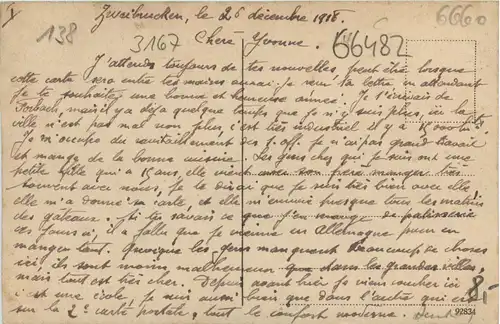 I
Zweibrucken, le 26 décembre 1918.
138
3167
66482
6660
Chère Yvonne.
J'attends toujours de tes nouvelles, peut être lorsque
cette carte sera entre tes mains aurai-je reçu ta lettre en attendant
je te souhaite une bonne et heureuse année. Je t'écrivais de
Forbach, mais il y a déjà quelque temps que je n'y suis plus, ici la
ville n'est pas mal non plus, c'est très industriel il y a 15000
Je m'occupe du ravitaillement des off. je n'ai pas grand travail
et mange de la bonne cuisine. Les gens chez qui je suis ont une
petite fille qui a 15 ans, elle vient avec son père manger très
souvent avec nous, je te dirai que je suis très bien avec elle
elle m'a donné carte, et elle m'envoie presque tous les matins
des gâteaux. Ah! tu savais ce que j'en mange de patisserie
ces jours ci, il a fallu que je vienne en Allemagne pour en
manger tant. Quoique les gens manquent beaucoup de choses
ici, ils sont moins malheureux que dans les grandes villes,
mais tout est très cher. Depuis avant hier je viens coucher ici
c'est une école, je suis aussi bien que dans l'autre qui est
sur la 2e carte postale, tout le confort moderne.
8,-
92834